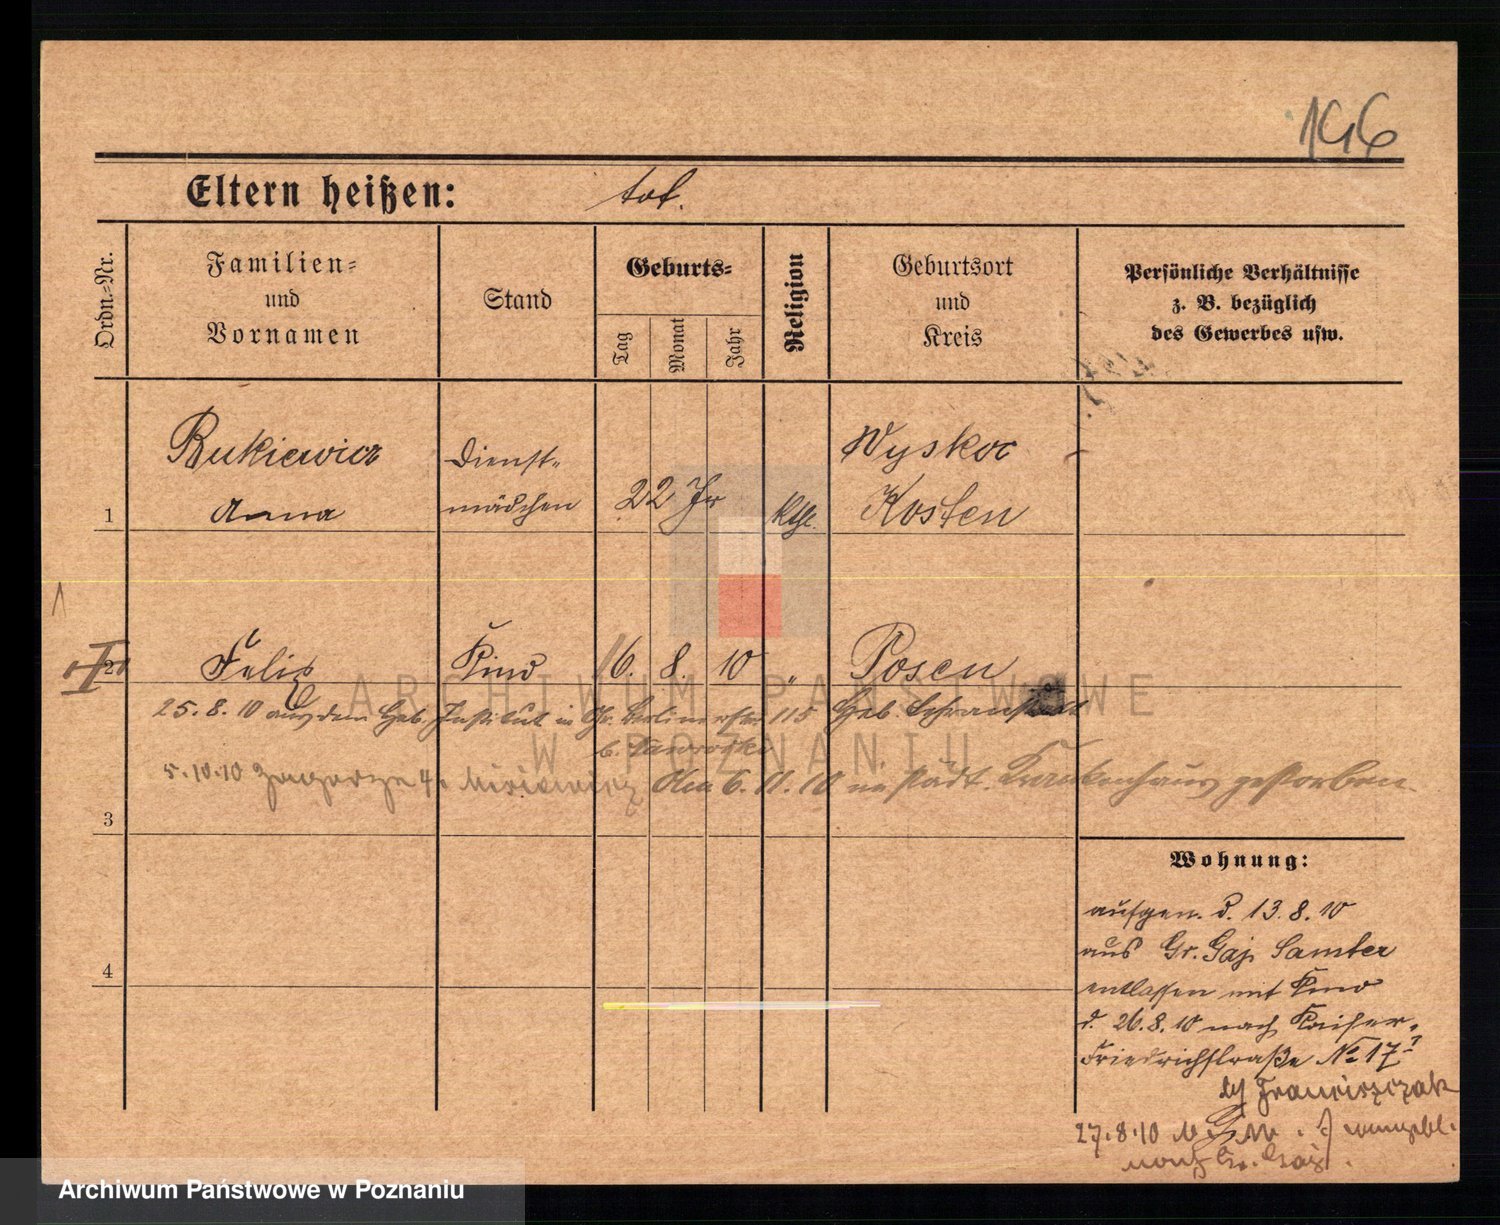 196
Eltern heißen: tot.
Ordn.-Nr.
Familien-
und
Vornamen
Stand
Geburts-
Tag
Monat
Jahr
Religion
Geburtsort
und
Kreis
Persönliche Verhältnisse
z. B. bezüglich
des Gewerbes usw.
1
Rukiewicz
Anna
Dienst-
mädchen
22 Jr
kth.
Wyskoc
Kosten
2
Felix
Kind
16. 8. 10
"
Posen
25. 8. 10 aus dem Geb. Institut in Gr. Berlinerstr 115 Geb.
5.10.10 Zagorze 4
Am 6. 11. 10 im städt. Krankenhaus gestorben.
3
4
Wohnung:
aufgen. d. 13. 8. 10
aus Gr. Gaj Samter
entlassen mit Kind
d. 26. 8. 10 nach Kaiser-
Friedrichstraße No 17
by Franciszczak
27.8.10
nach Gr. Gaj.
ARCHIWUM PAŃSTWOWE
W POZNANIU
Archiwum Państwowe w Poznaniu